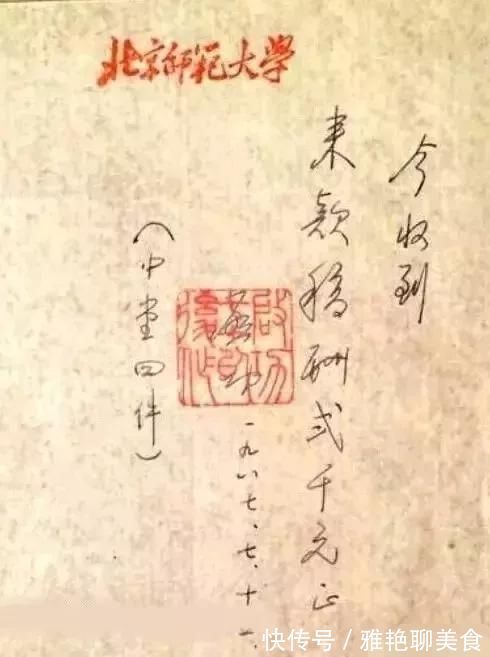 北京師範大學
今收到
来款稿酬弍千元正
启功
一九八七、七、十一、
（中堂四件）
快传号/雅艳聊美食